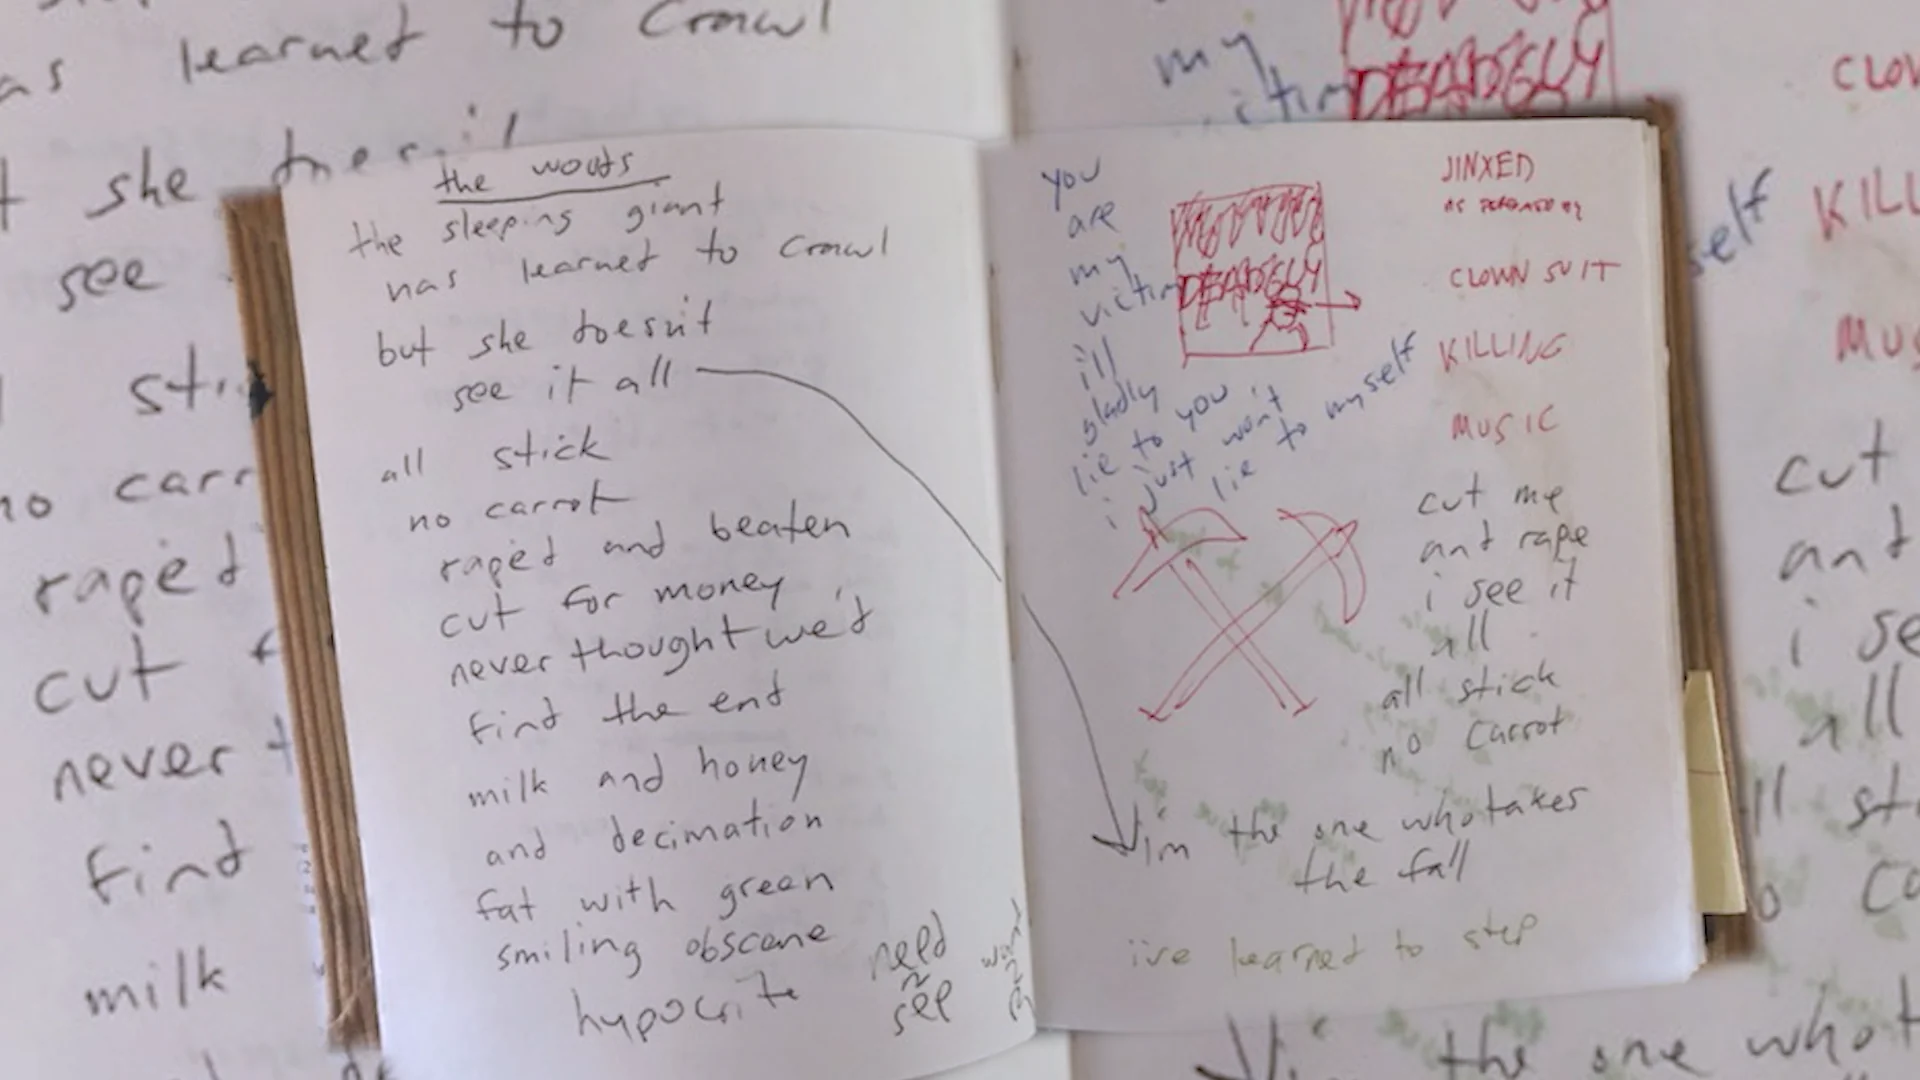 the woods
the sleeping giant
has learned to crawl
but she doesn't
see it all
all stick
no carrot
raped and beaten
cut for money
never thought we'd
find the end
milk and honey
and decimation
fat with green
smiling obscene
hypocrite
need
2
see
you
are
my
victim
i'll
gladly
lie to you
i just won't
lie to myself
DEADGUY
JINXED
CLOWN SUIT
KILLING
MUSIC
cut me
and rape
i see it
all
all stick
no carrot
i'm the one who takes
the fall
i've learned to step